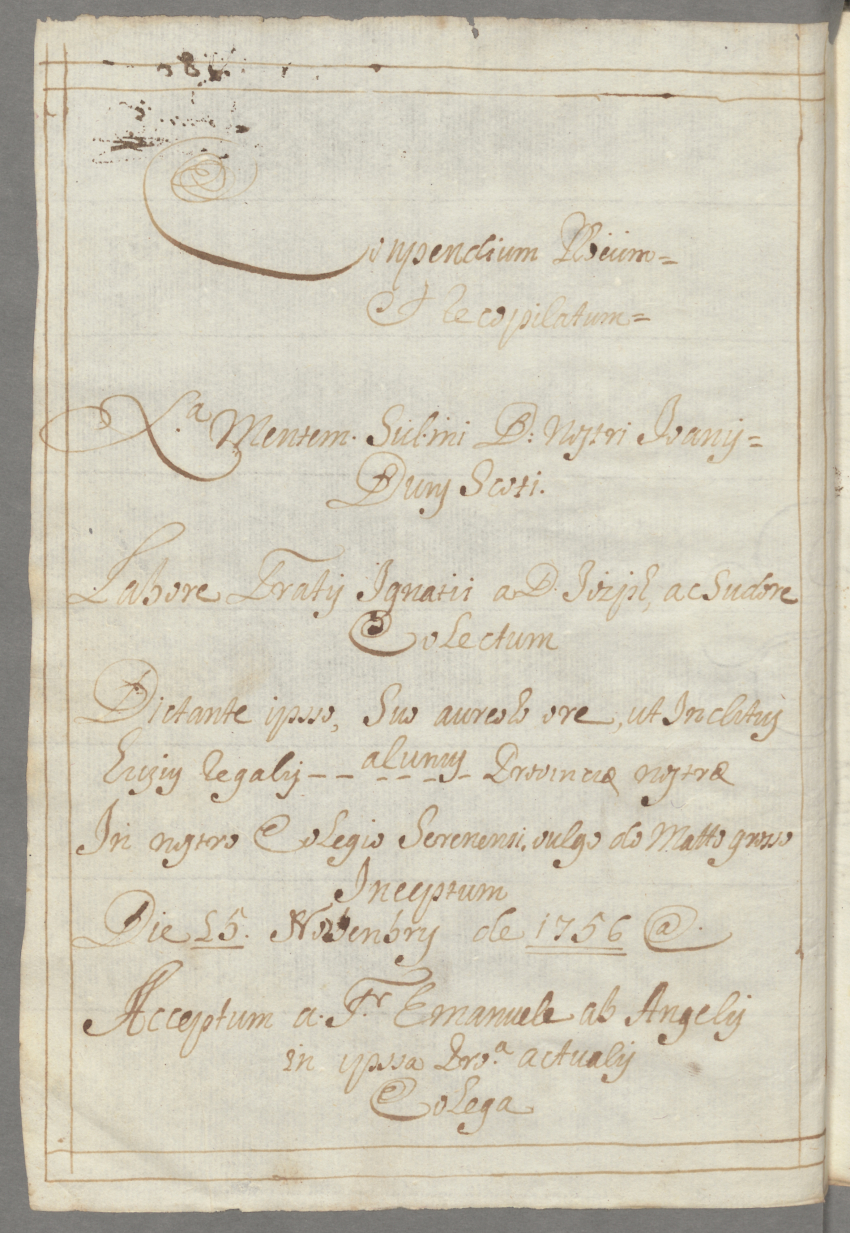 Conpendium
Et Recopilatum=
X.ª Mentem. Subtmi D: Nostri Joanis=
Duns Scoti.
Labore Fratis Ignatii a D. Jozph, ac Sudore
Colectum
Dictante ipsso, Suo aureolo ore, ut Inclitus
Regalis -- alunus Provinciæ nostræ
In nostro Colegio Serenensi, vulgo do Matto grosso
Inceptum
Die 15. Novenbris de 1756 @.
Acceptum a: Fr. Emanuele ab Angelis
in ipssa Pro.ª actualis
Colega